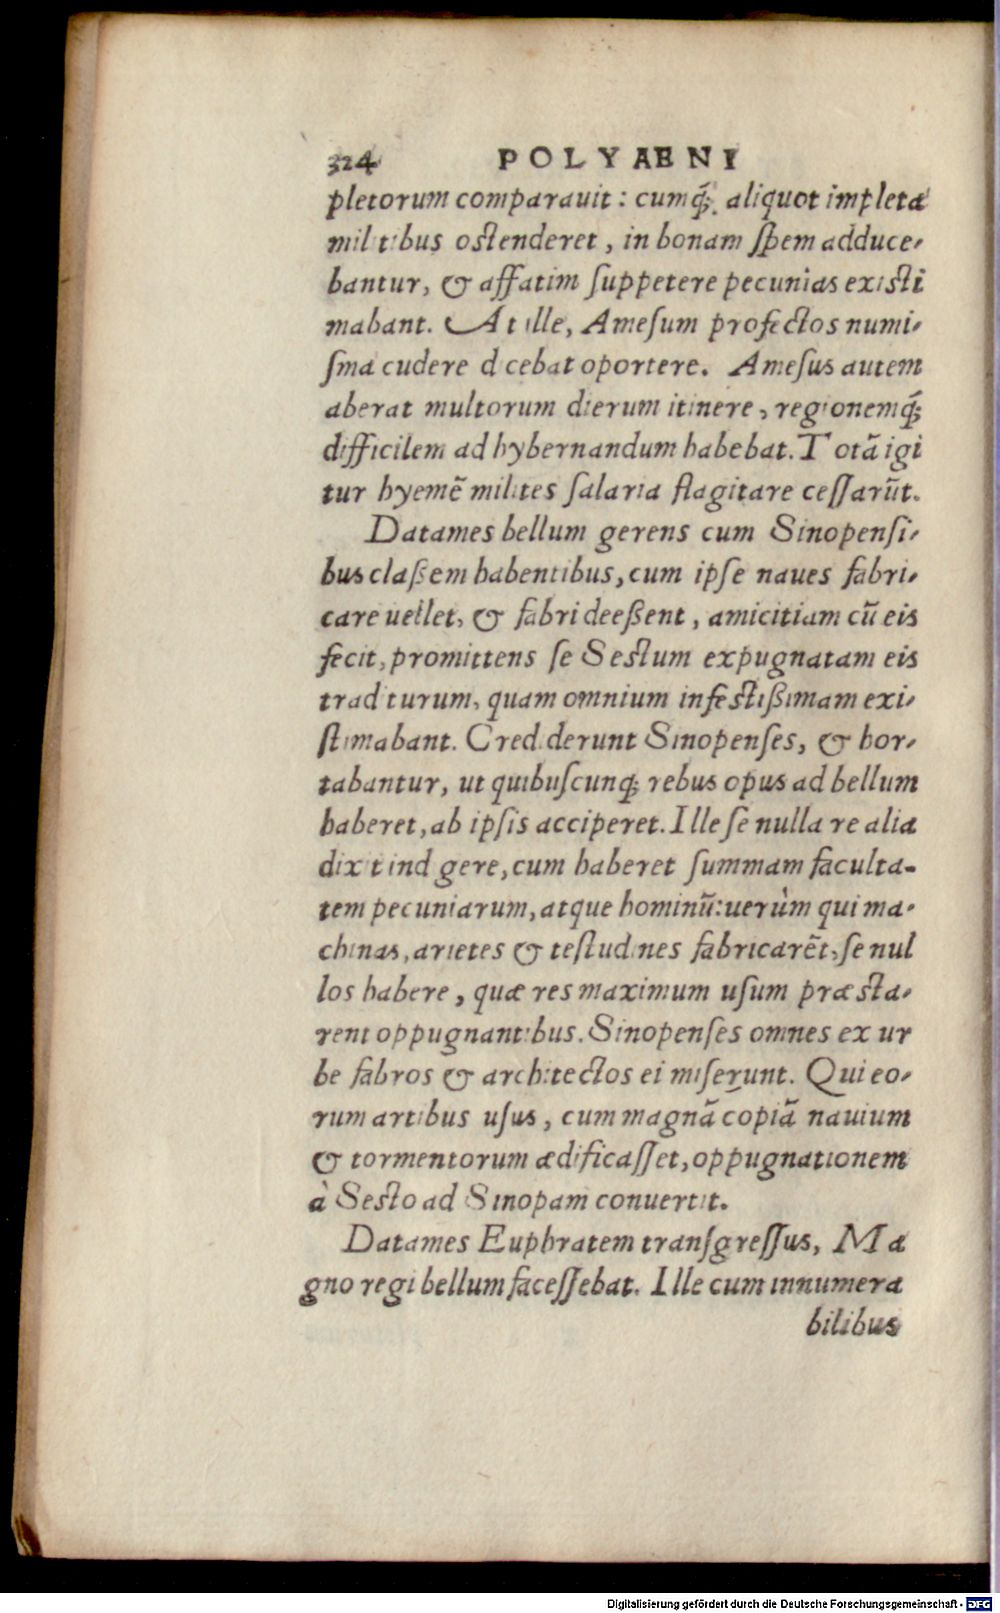 324 POLYAENI
pletorum comparauit: cumq́;. aliquot impletæ
militibus ostenderet, in bonam spem adduce-
bantur, & affatim suppetere pecunias existi
mabant. At ille, Amesum profectos numi-
sma cudere dicebat oportere. Amesus autem
aberat multorum dierum itinere, regionemq́;
difficilem ad hybernandum habebat. Totã igi
tur hyemẽ milites salaria flagitare cessarũt.
Datames bellum gerens cum Sinopensi-
bus claßem habentibus, cum ipse naues fabri-
care uellet, & fabri deeßent, amicitiam cũ eis
fecit, promittens se Sestum expugnatam eis
traditurum, quam omnium infestißimam exi-
stimabant. Crediderunt Sinopenses, & hor-
tabantur, ut quibuscunq; rebus opus ad bellum
haberet, ab ipsis acciperet. Ille se nulla re alia
dixit indigere, cum haberet summam faculta-
tem pecuniarum, atque hominũ: uerùm qui ma-
chinas, arietes & testudines fabricarẽt, se nul
los habere, quæ res maximum usum præsta-
rent oppugnantibus. Sinopenses omnes ex ur
be fabros & architectos ei miserunt. Qui eo-
rum artibus usus, cum magnã copiã nauium
& tormentorum ædificasset, oppugnationem
à Sesto ad Sinopam conuertit.
Datames Euphratem transgressus, Ma
gno regi bellum facessebat. Ille cum innumera
bilibus
Digitalisierung gefördert durch die Deutsche Forschungsgemeinschaft - DFG